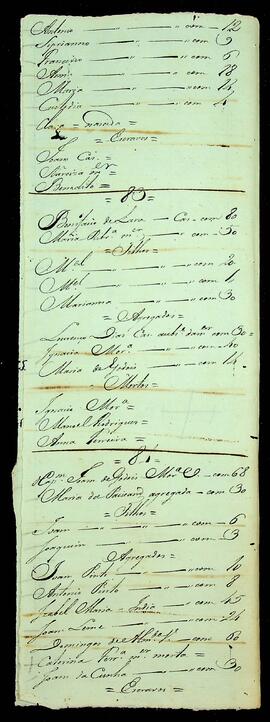 Antonio — — com 12
Sipriano — — com 3
Francisco — — com 6
Anna — — com 18
Maria — — com 14
Custodia — — com 4
= Escravos =
Joam Cas.
Benedito =
= 83 =
Bonifacio de Lara — Cas. com 80
Maria Rib.ª m.er — com 30
= Filhos =
M.el — — com 20
M.el — — com 1
Marianna — — com 30
= Agregados =
Lourenço Dias Cas. com 30
Ignacia Mor.ª — com 40
Maria de Godois — com 14
= Mortos =
Ignacio Mor.ª
Manuel Rodrigues
Anna Ferreira
Joam de Godois Mor.ª — com 68
Maria da agregada — com 30
= Filhos =
Joam — — com 6
Joaquim — — com 3
Agregados =
Joam Pinto — com 10
Antonio Pinto — com 8
Izabel Maria - India com 45
Joam Leme — com 24
Domingos de com 63
Caterina m.er morta =
Joam da Cunha — com 30
= Escravos =